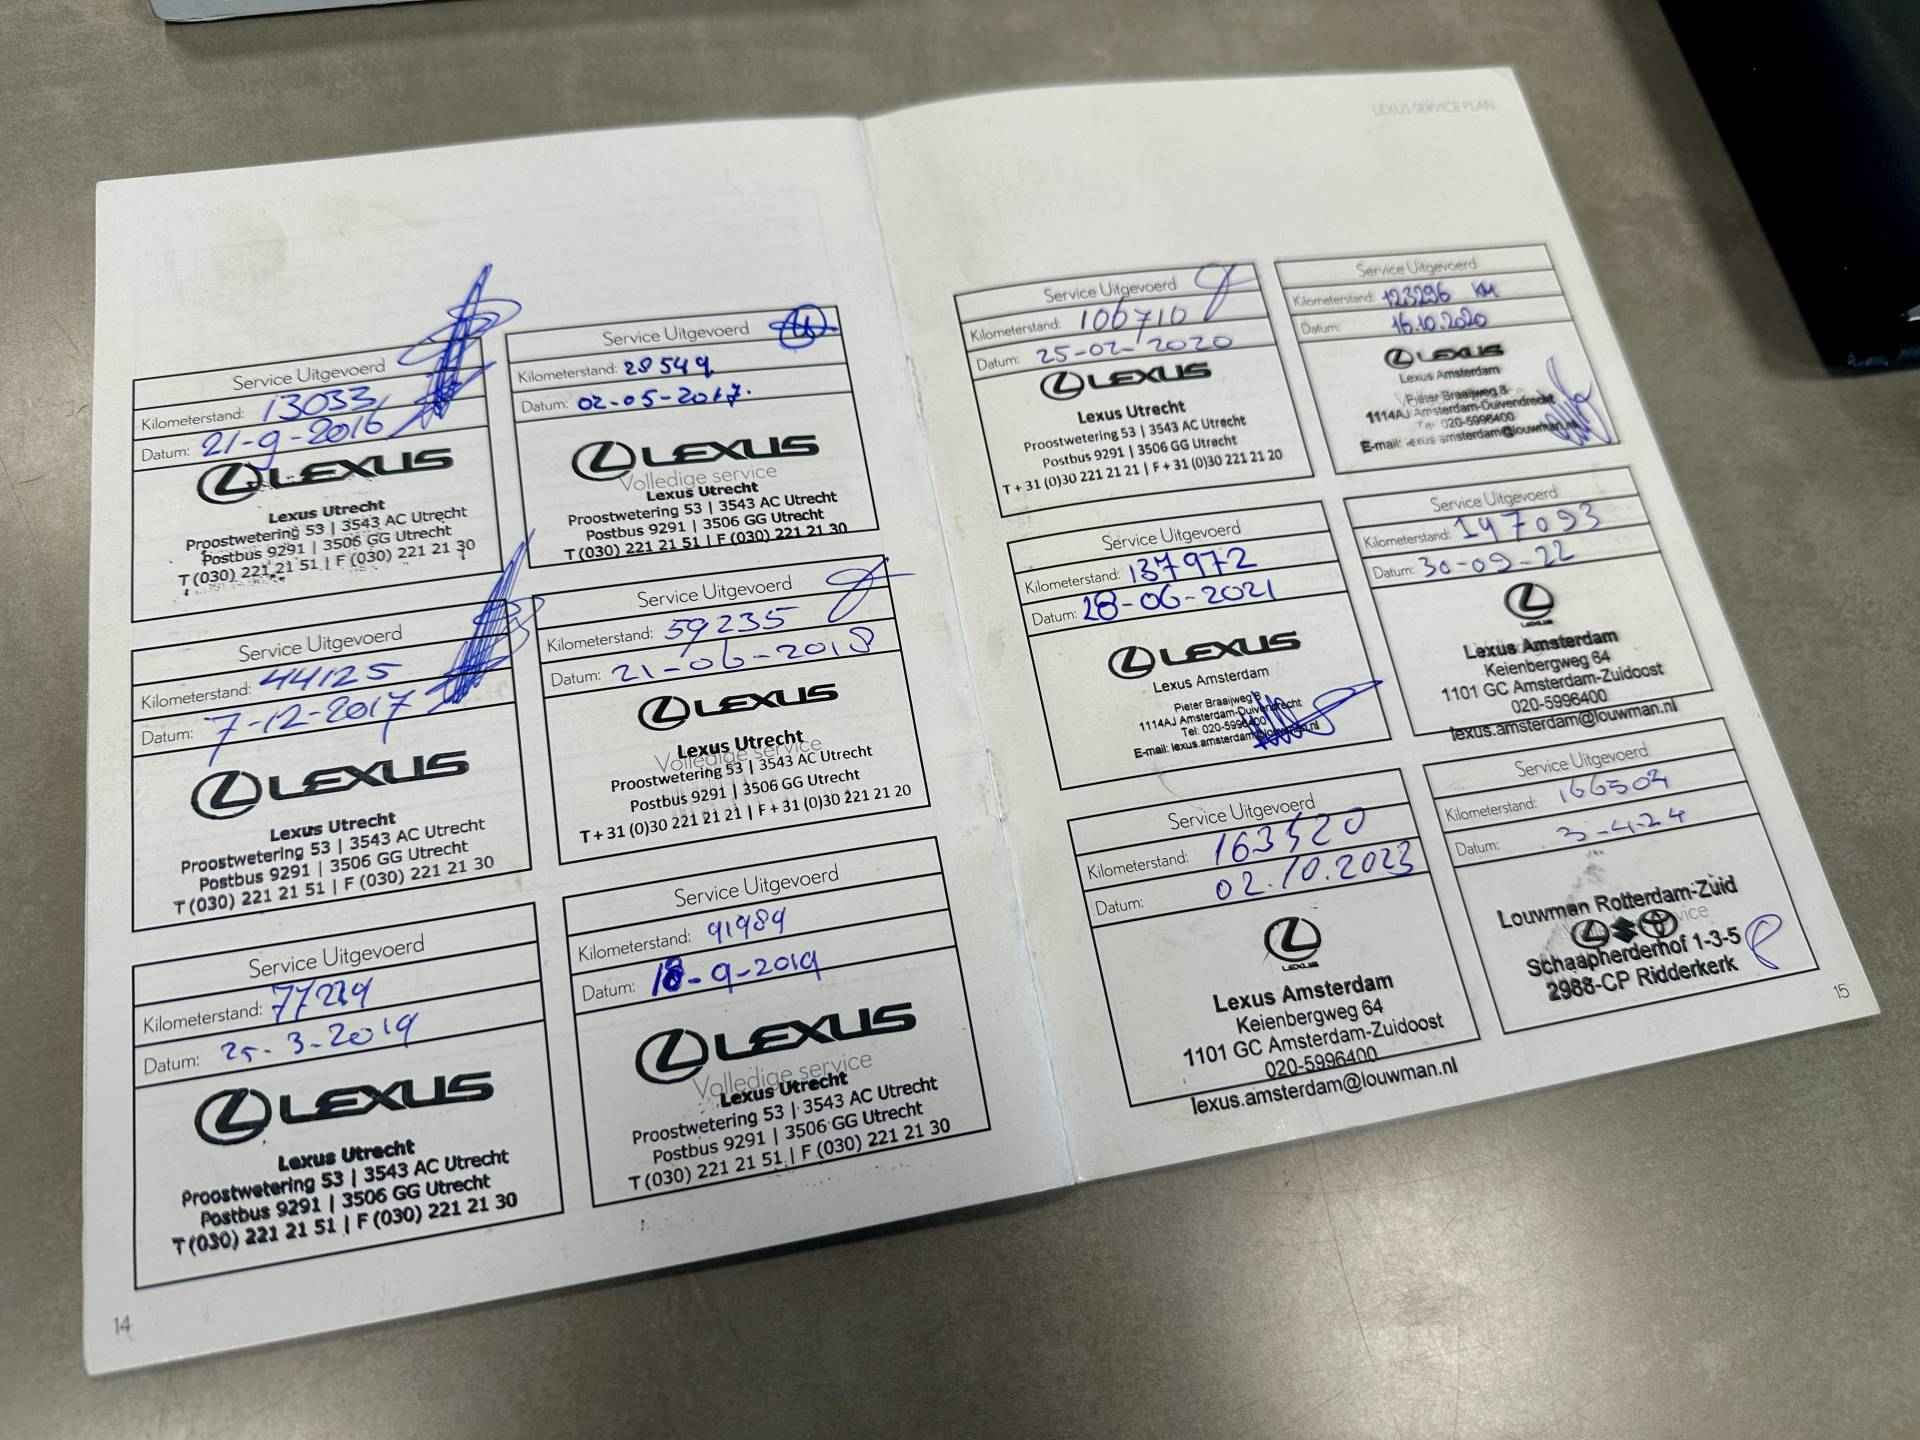 LEXUS SERVICE PLAN
Service Uitgevoerd
Kilometerstand: 13033
Datum: 21-9-2016
LEXUS
Lexus Utrecht
Proostwetering 53 | 3543 AC Utrecht
Postbus 9291 | 3506 GG Utrecht
T (030) 221 21 51 | F (030) 221 21 30
Service Uitgevoerd
Kilometerstand: 28549
Datum: 02-05-2017.
LEXUS
Volledige service
Lexus Utrecht
Proostwetering 53 | 3543 AC Utrecht
Postbus 9291 | 3506 GG Utrecht
T (030) 221 21 51 | F (030) 221 21 30
Service Uitgevoerd
Kilometerstand: 44125
Datum: 7-12-2017
LEXUS
Lexus Utrecht
Proostwetering 53 | 3543 AC Utrecht
Postbus 9291 | 3506 GG Utrecht
T (030) 221 21 51 | F (030) 221 21 30
Service Uitgevoerd
Kilometerstand: 59235
Datum: 21-06-2018
LEXUS
Lexus Utrecht
Volledige service
Proostwetering 53 | 3543 AC Utrecht
Postbus 9291 | 3506 GG Utrecht
T + 31 (0)30 221 21 21 | F + 31 (0)30 221 21 20
Service Uitgevoerd
Kilometerstand:
Datum: 25-3-2019
LEXUS
Lexus Utrecht
Proostwetering 53 | 3543 AC Utrecht
Postbus 9291 | 3506 GG Utrecht
T (030) 221 21 51 | F (030) 221 21 30
Service Uitgevoerd
Kilometerstand: 91989
Datum: 18-9-2019
LEXUS
Volledige service
Lexus Utrecht
Proostwetering 53 | 3543 AC Utrecht
Postbus 9291 | 3506 GG Utrecht
T (030) 221 21 51 | F (030) 221 21 30
14
Service Uitgevoerd
Kilometerstand: 106710
Datum: 25-02-2020
LEXUS
Lexus Utrecht
Proostwetering 53 | 3543 AC Utrecht
Postbus 9291 | 3506 GG Utrecht
T + 31 (0)30 221 21 21 | F + 31 (0)30 221 21 20
Service Uitgevoerd
Kilometerstand: 123296 KM
Datum: 16.10.2020
LEXUS
Lexus Amsterdam
Pieter Braaijweg 8
1114AJ Amsterdam-Duivendrecht
Tel: 020-5996400
E-mail: lexus.amsterdam@louwman.nl
Service Uitgevoerd
Kilometerstand: 137972
Datum: 28-06-2021
LEXUS
Lexus Amsterdam
Pieter Braaijweg 8
1114AJ Amsterdam-Duivendrecht
Tel: 020-5996400
E-mail: lexus.amsterdam@louwman.nl
Service Uitgevoerd
Kilometerstand: 147093
Datum: 30-09-22
LEXUS
Lexus Amsterdam
Keienbergweg 64
1101 GC Amsterdam-Zuidoost
020-5996400
lexus.amsterdam@louwman.nl
Service Uitgevoerd
Kilometerstand: 163520
Datum: 02.10.2023
LEXUS
Lexus Amsterdam
Keienbergweg 64
1101 GC Amsterdam-Zuidoost
020-5996400
lexus.amsterdam@louwman.nl
Service Uitgevoerd
Kilometerstand: 166504
Datum: 3-4-24
Louwman Rotterdam-Zuid
Schaapherderhof 1-3-5
2988-CP Ridderkerk
15